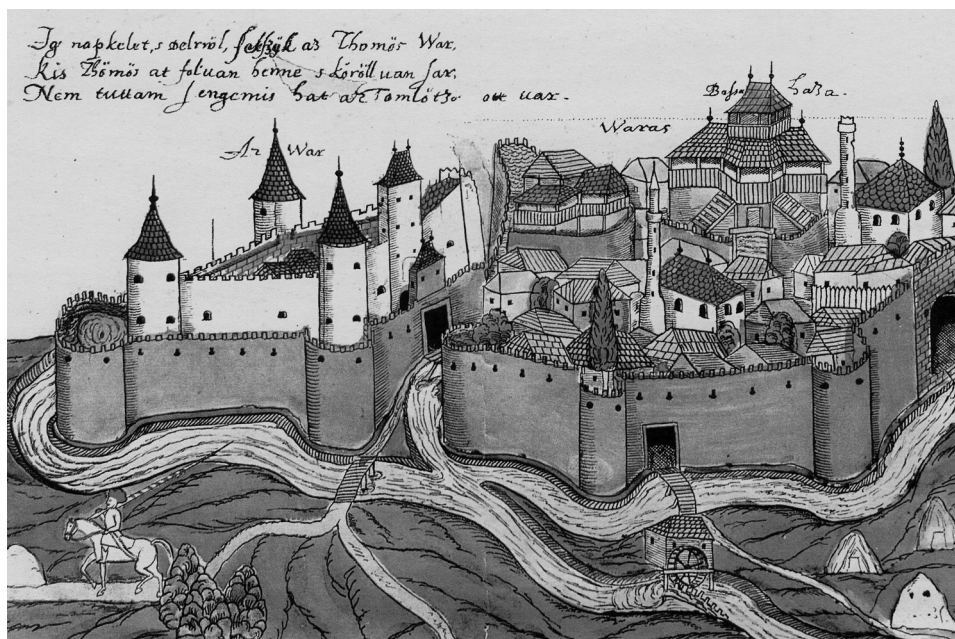 Ig napkelet, s delrwl, fekszÿk az Thömös War,
Kis Thömös at foluan benne s köröll uan sar,
Nem tuttam s engemis hat az Tömlötze ott uar.
Az War
Waras
Bassa haza.